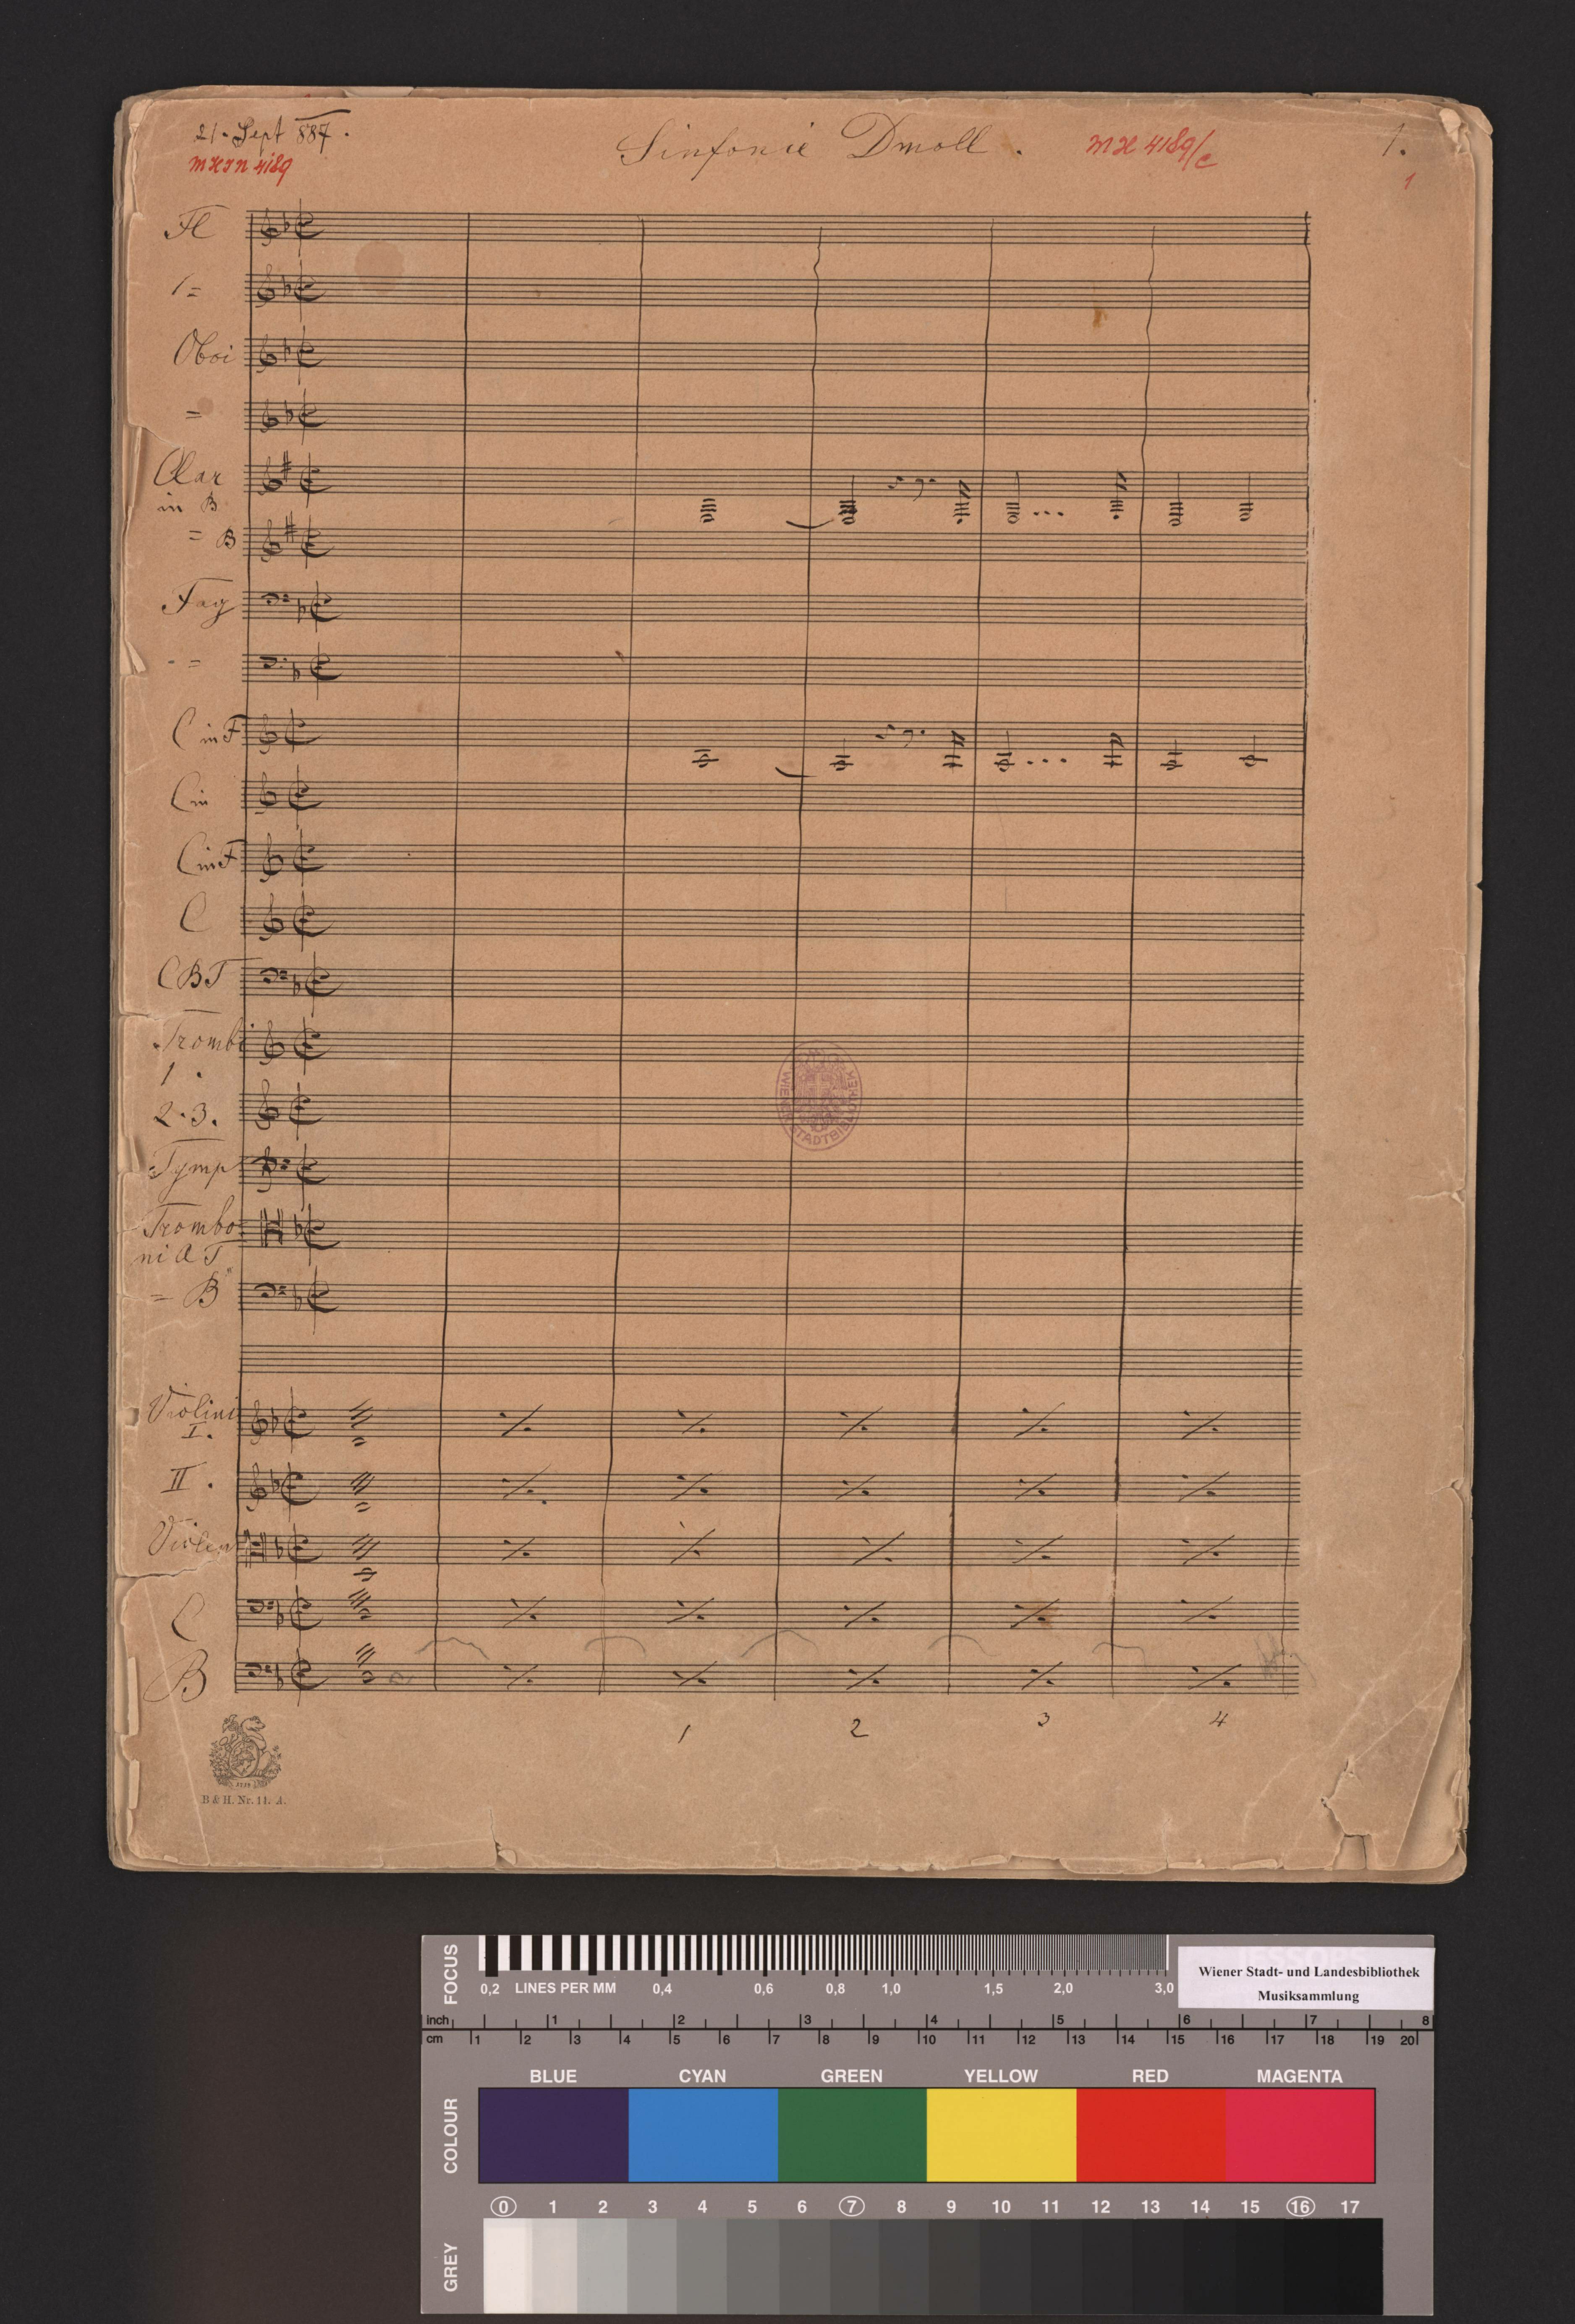 21. Sept 887.
Sinfonie Dmoll.
MH 4189/c
1.
MHIN 4189
1
Fl
1 =
Oboi
=
Clar
in B
= B
Fag
- =
C in F
C in
C in F
C
CBT
Trombi
1.
2.3.
Tymp
Trombo
ni A T
= B
Violini
I.
II.
C
B
1 2 3 4
WIENER STADTBIBLIOTHEK
B & H. Nr. 11. A.
FOCUS
0,2 LINES PER MM 0,4 0,6 0,8 1,0 1,5 2,0 3,0
Wiener Stadt- und Landesbibliothek
Musiksammlung
inch 1 2 3 4 5 6 7 8
cm 1 2 3 4 5 6 7 8 9 10 11 12 13 14 15 16 17 18 19 20
COLOUR
BLUE CYAN GREEN YELLOW RED MAGENTA
0 1 2 3 4 5 6 7 8 9 10 11 12 13 14 15 16 17
GREY